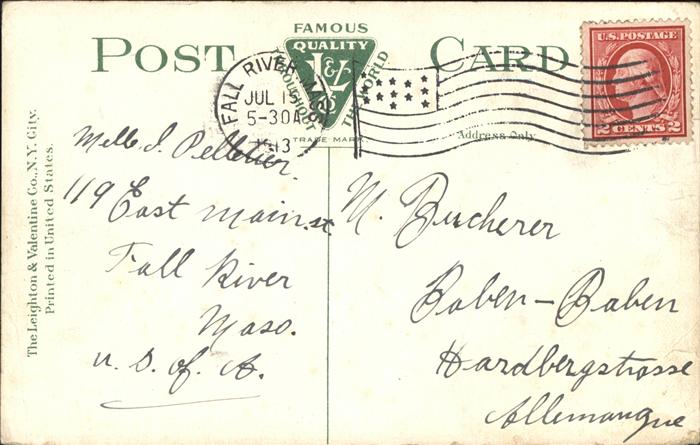 POST CARD
FAMOUS
QUALITY
L&V
THROUGHOUT THE WORLD
TRADE MARK
Address Only
FALL RIVER, MASS.
JUL 15
5-30A
1913
U.S. POSTAGE
2 CENTS 2
The Leighton & Valentine Co., N.Y. City.
Printed in United States.
Melle J. Pelletier
119 East main st.
Fall River
Mass.
U. S. of A.
M. Bucherer
Baben-Baben
Hardbergstrosse
Allemangne